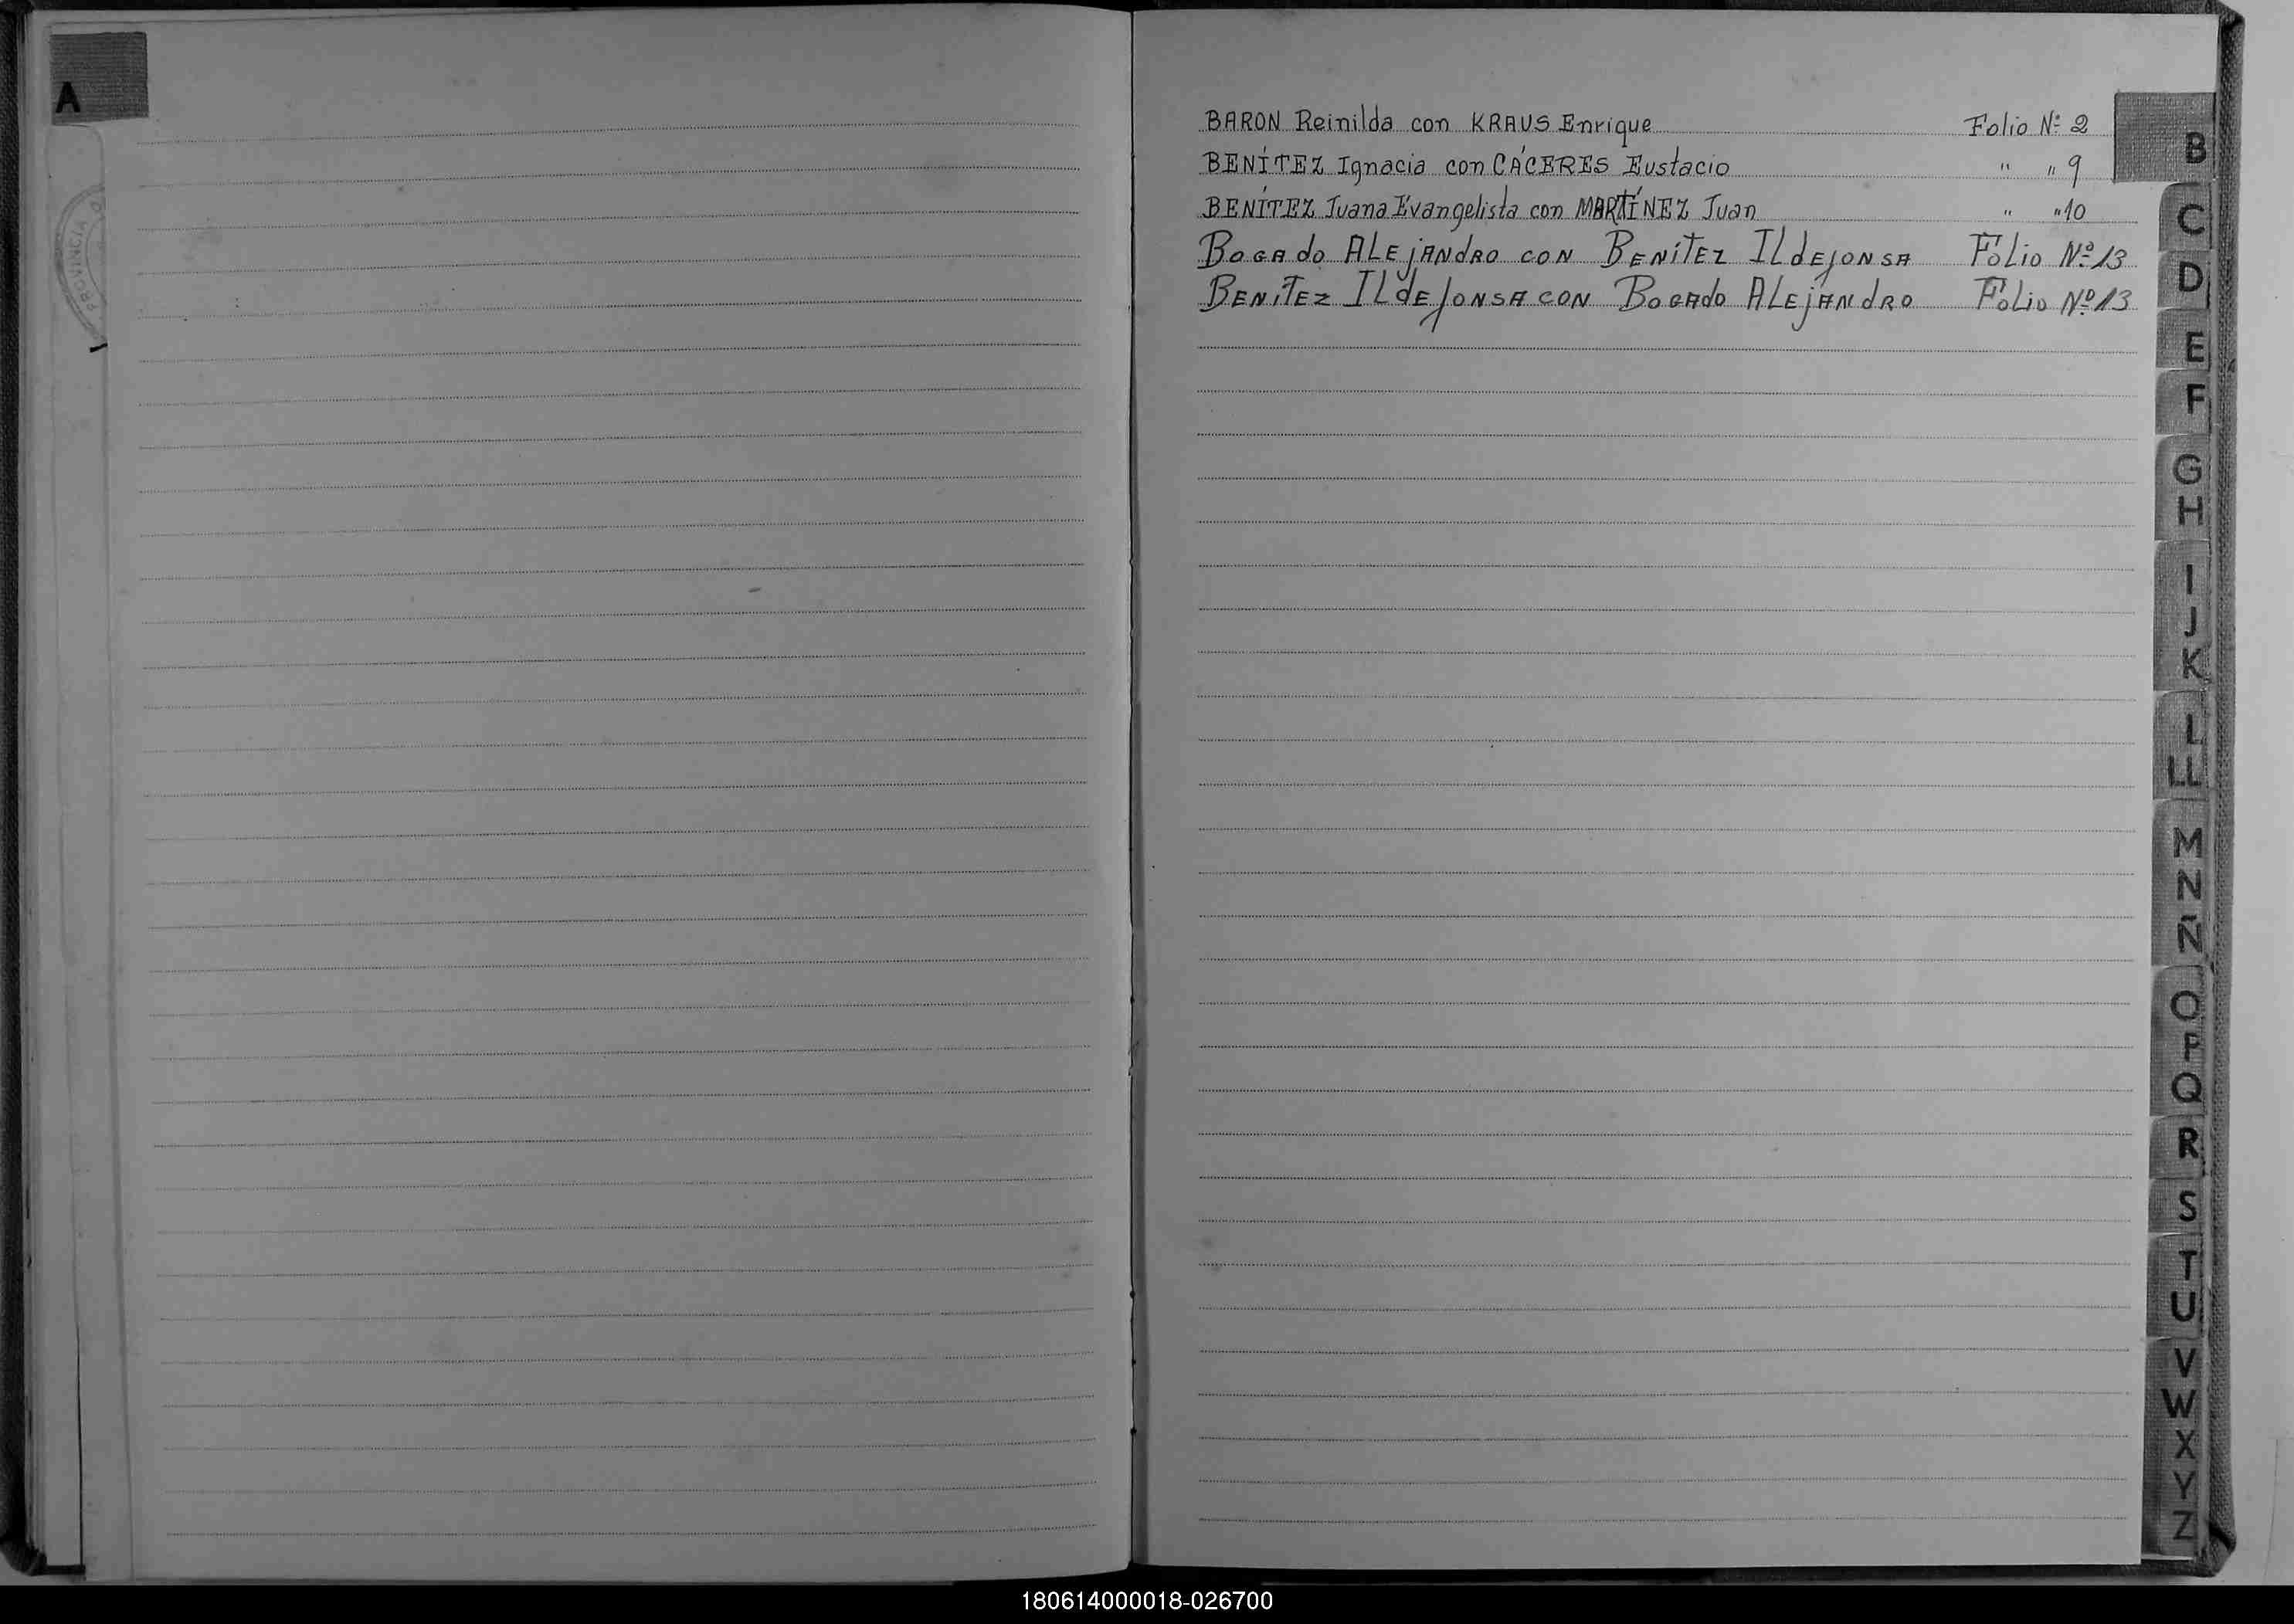 A
PROVINCIA
BARON Reinilda con KRAUS Enrique Folio Nº 2
BENÍTEZ Ignacia con CÁCERES Eustacio " " 9
BENÍTEZ Juana Evangelista con MARTÍNEZ Juan " " 10
BOGAdo ALEjANdRO CON BENíTEZ ILdEfONSA Folio Nº 13
BENiTEZ ILdEfONSA CON BOGAdo ALEjANdRO Folio Nº 13
B
C
D
E
F
G
H
I
J
K
L
LL
M
N
Ñ
O
P
Q
R
S
T
U
V
W
X
Y
Z
180614000018-026700